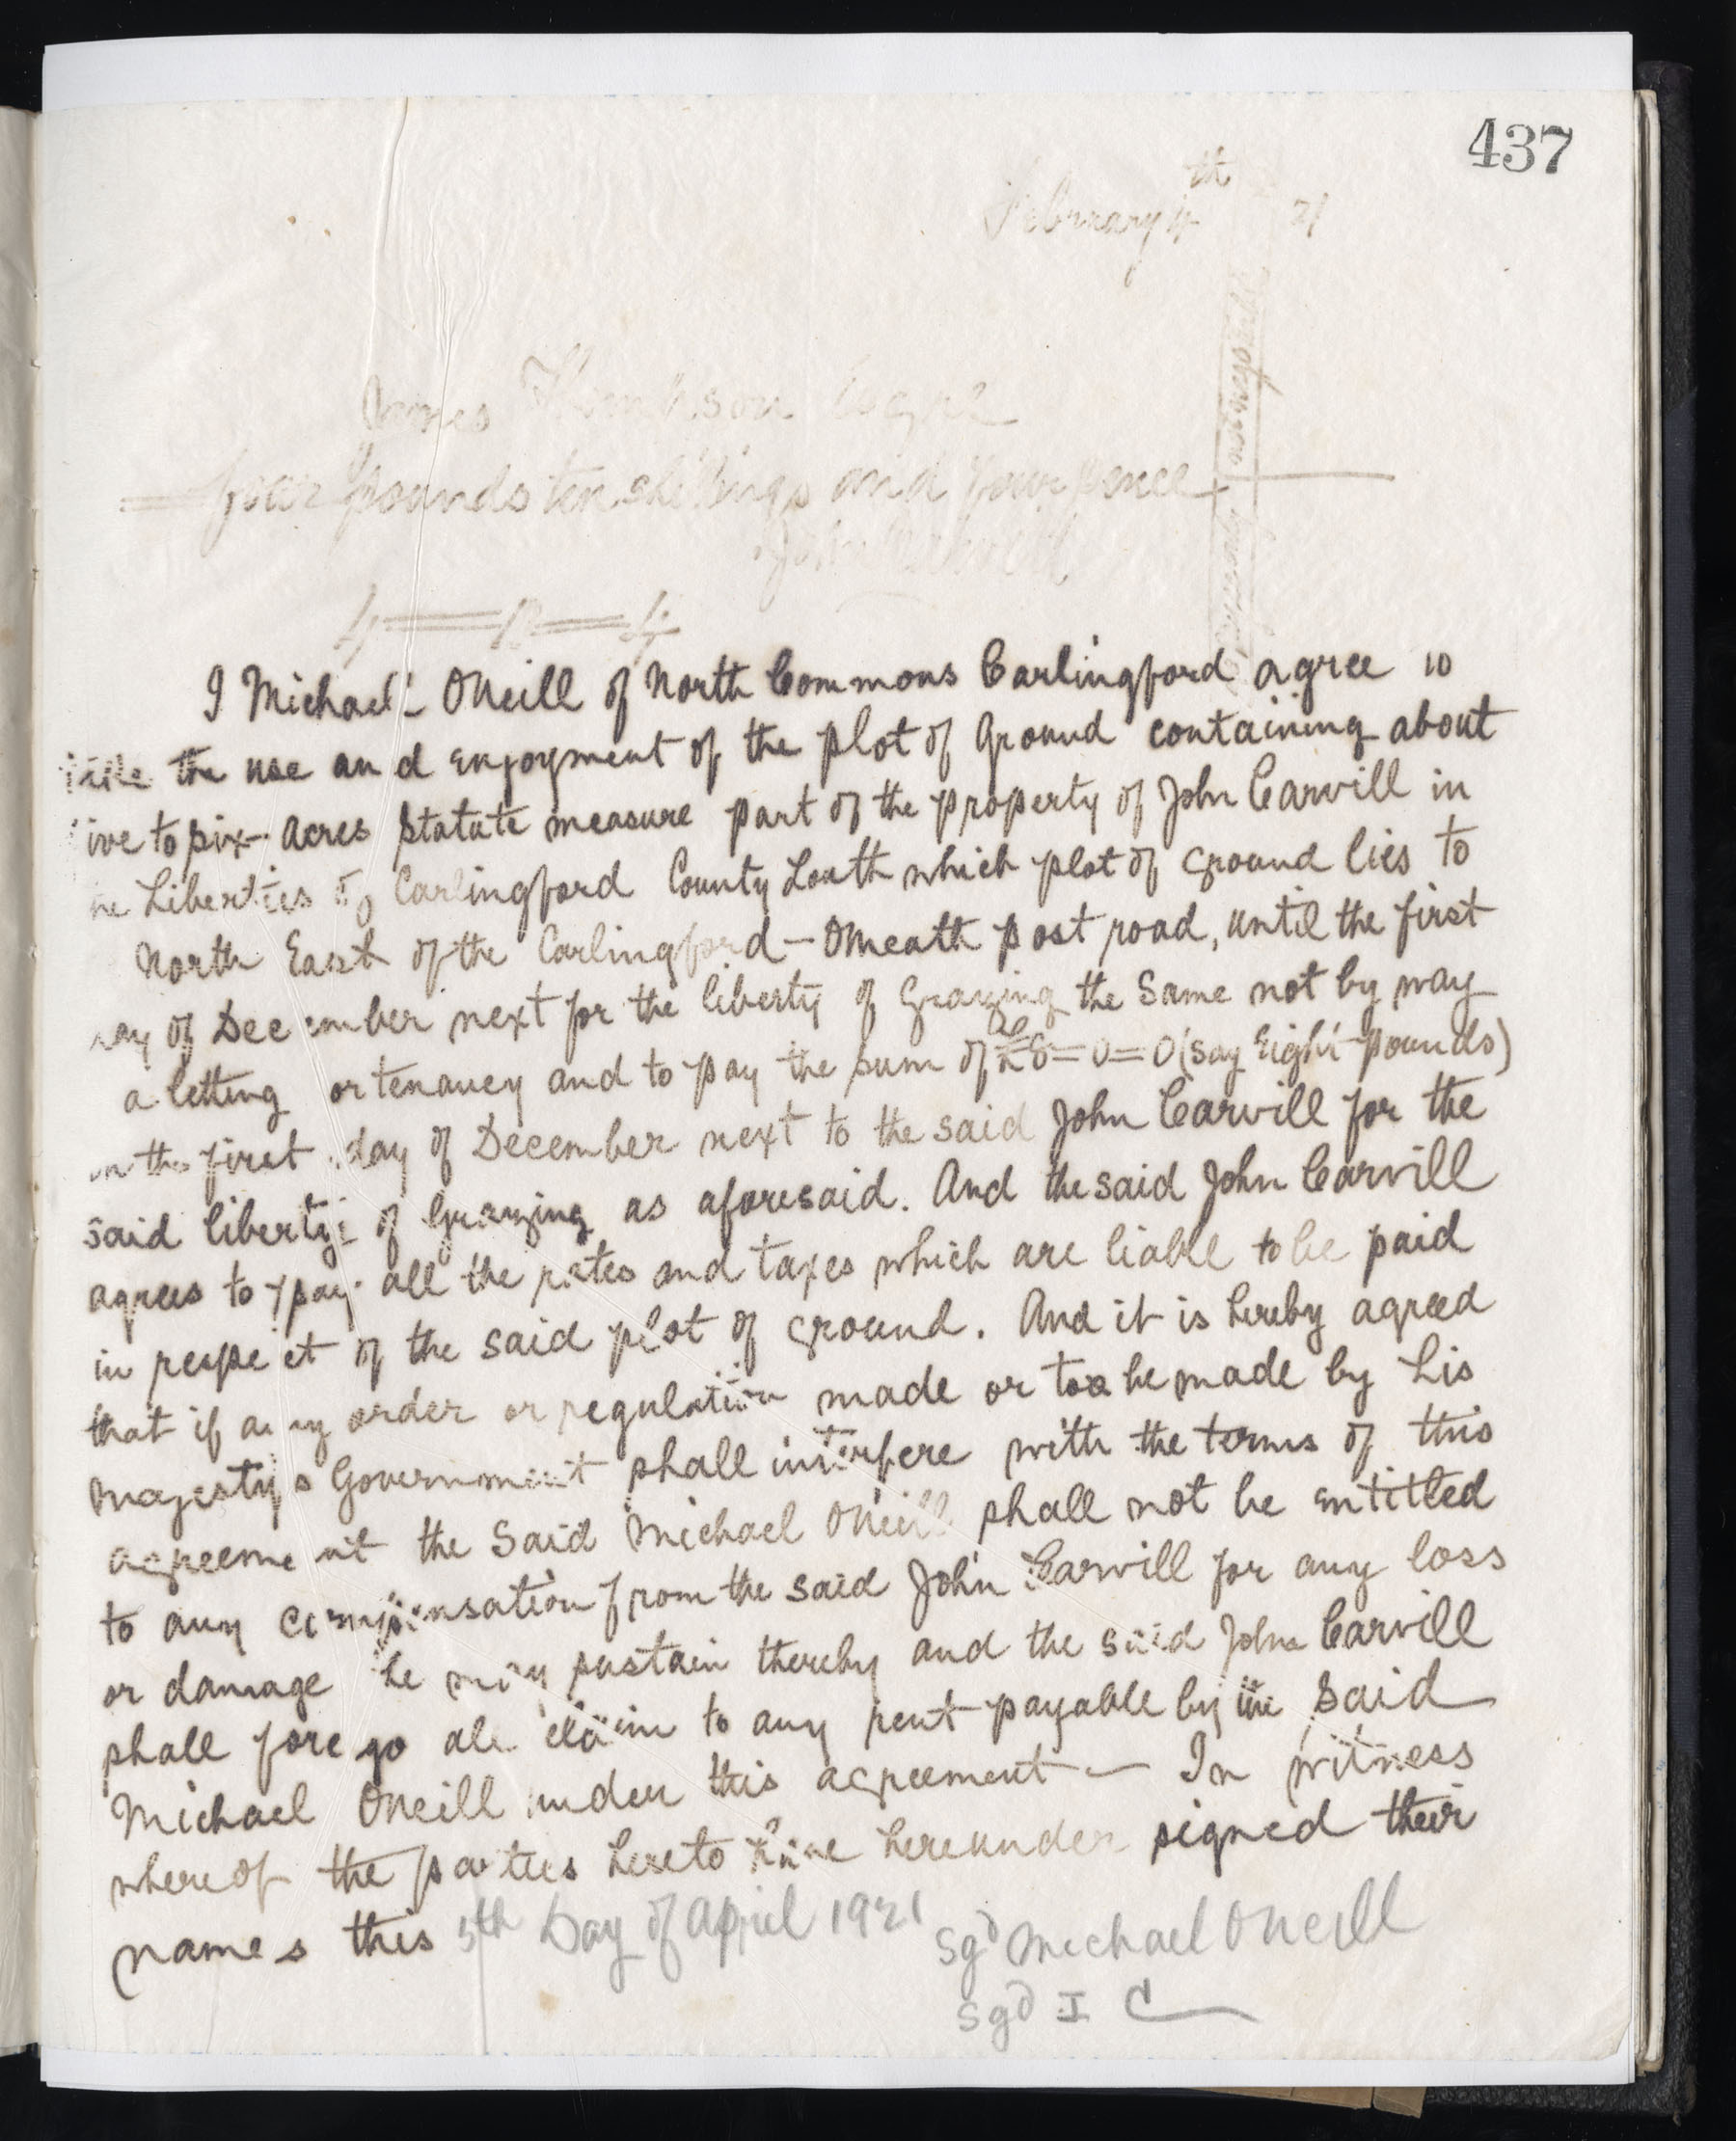 437
February 4th 21
James Thompson Esqre
four pounds ten shillings and four pence
John Carvill
4 = 10 = 4
I Michael ONeill of North Commons Carlingford agree to
take the use and enjoyment of the plot of Ground containing about
ive to six acres statute measure part of the property of John Carvill in
he Liberties of Carlingford County Louth which plot of ground lies to
North East of the Carlingford - Omeath post road, until the first
day of December next for the liberty of Grazing the same not by way
a letting or tenancy and to pay the sum of £8=0=0 (say Eight pounds)
on the first day of December next to the said John Carvill for the
said liberty of Grazing as aforesaid. And the said John Carvill
agrees to pay all the rates and taxes which are liable to be paid
in respect of the said plot of ground. And it is hereby agreed
that if any order or regulation made or too be made by his
majestys Government shall interfere with the terms of this
agreement the said Michael ONeill shall not be entitled
to any compensation from the said John Carvill for any loss
or damage he may sustain thereby and the said John Carvill
shall forego all claim to any rent payable by the said
Michael ONeill under this agreement — In witness
whereof the parties hereto have hereunder signed their
names this 5th Day of April 1921
Sgd Michael ONeill
Sgd I C